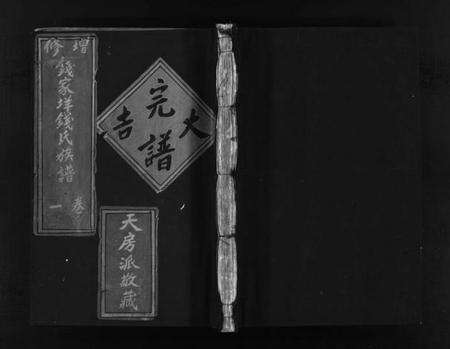 增修
錢家垟錢氏族譜
卷一
完譜
大吉
天房派敬藏